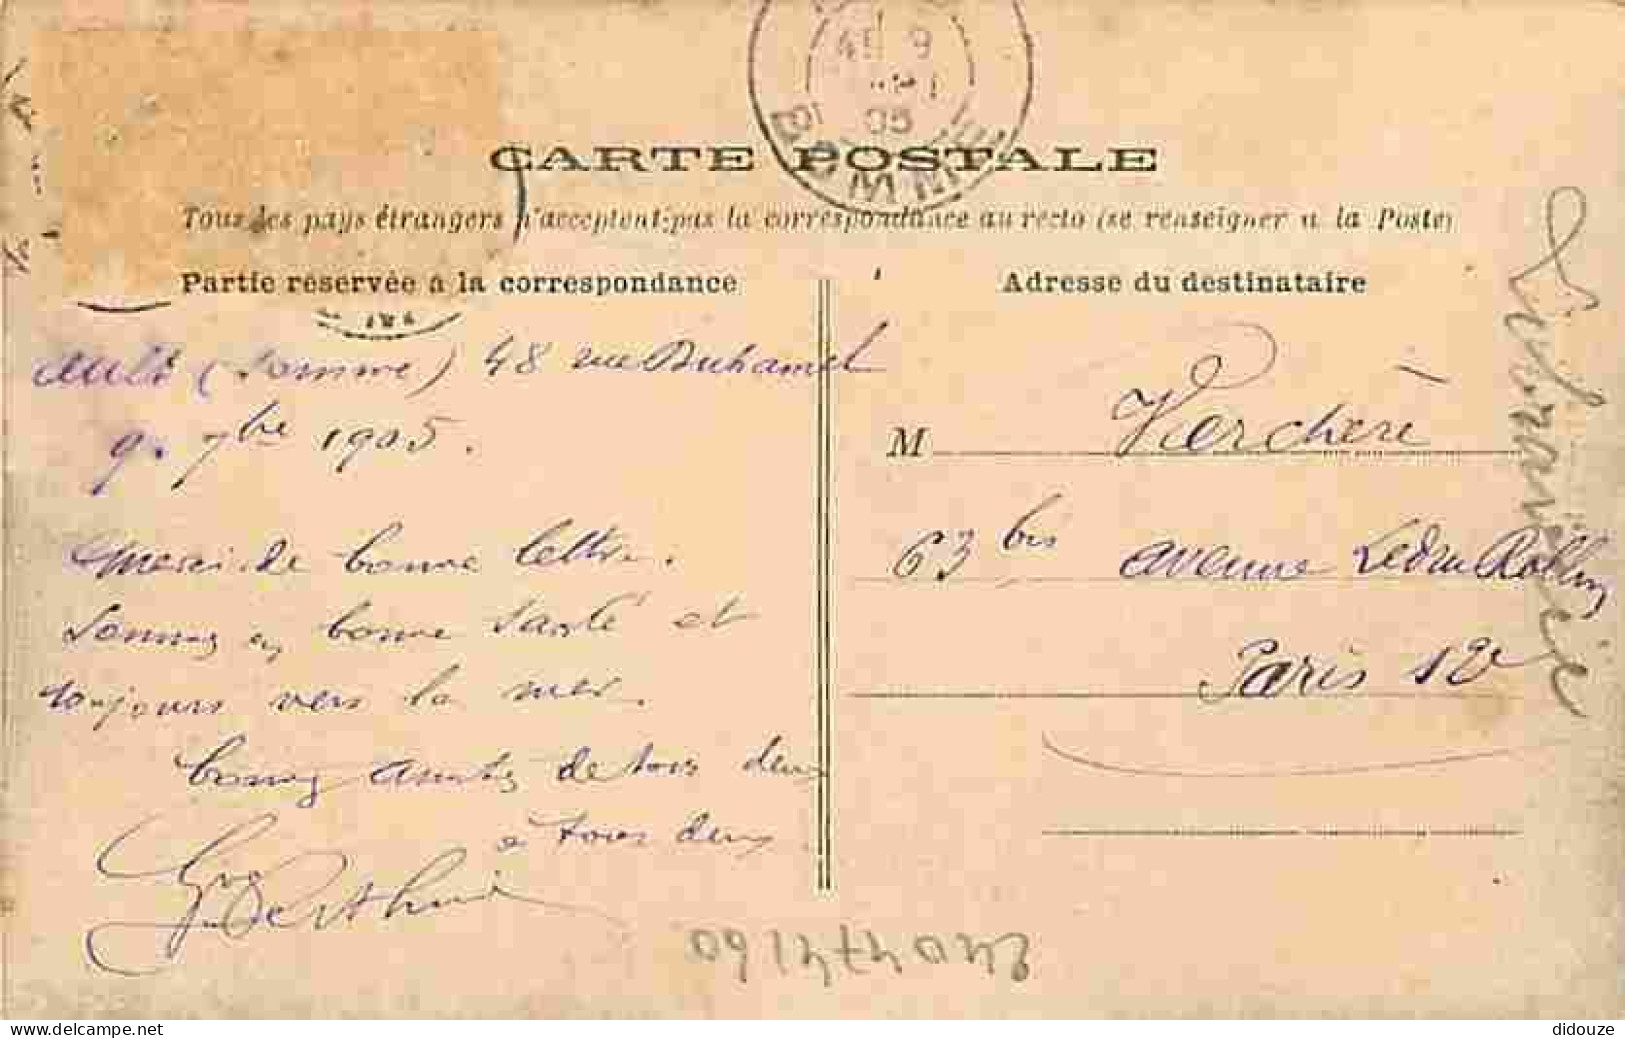 CARTE POSTALE
Tous les pays étrangers n'acceptent pas la correspondance au recto (se renseigner à la Poste)
Partie réservée à la correspondance
Adresse du destinataire
Ault (Somme) 48 rue Duhamel
9. 7bre 1905.
Merci de bonne lettre.
Sommes en bonne santé et
toujours vers la mer.
bonnes amitiés de tous deux
à tous deux
Berthe
M Verchère
63 bis avenue Ledru Rollin
Paris 12e
05
SOMME
didouze